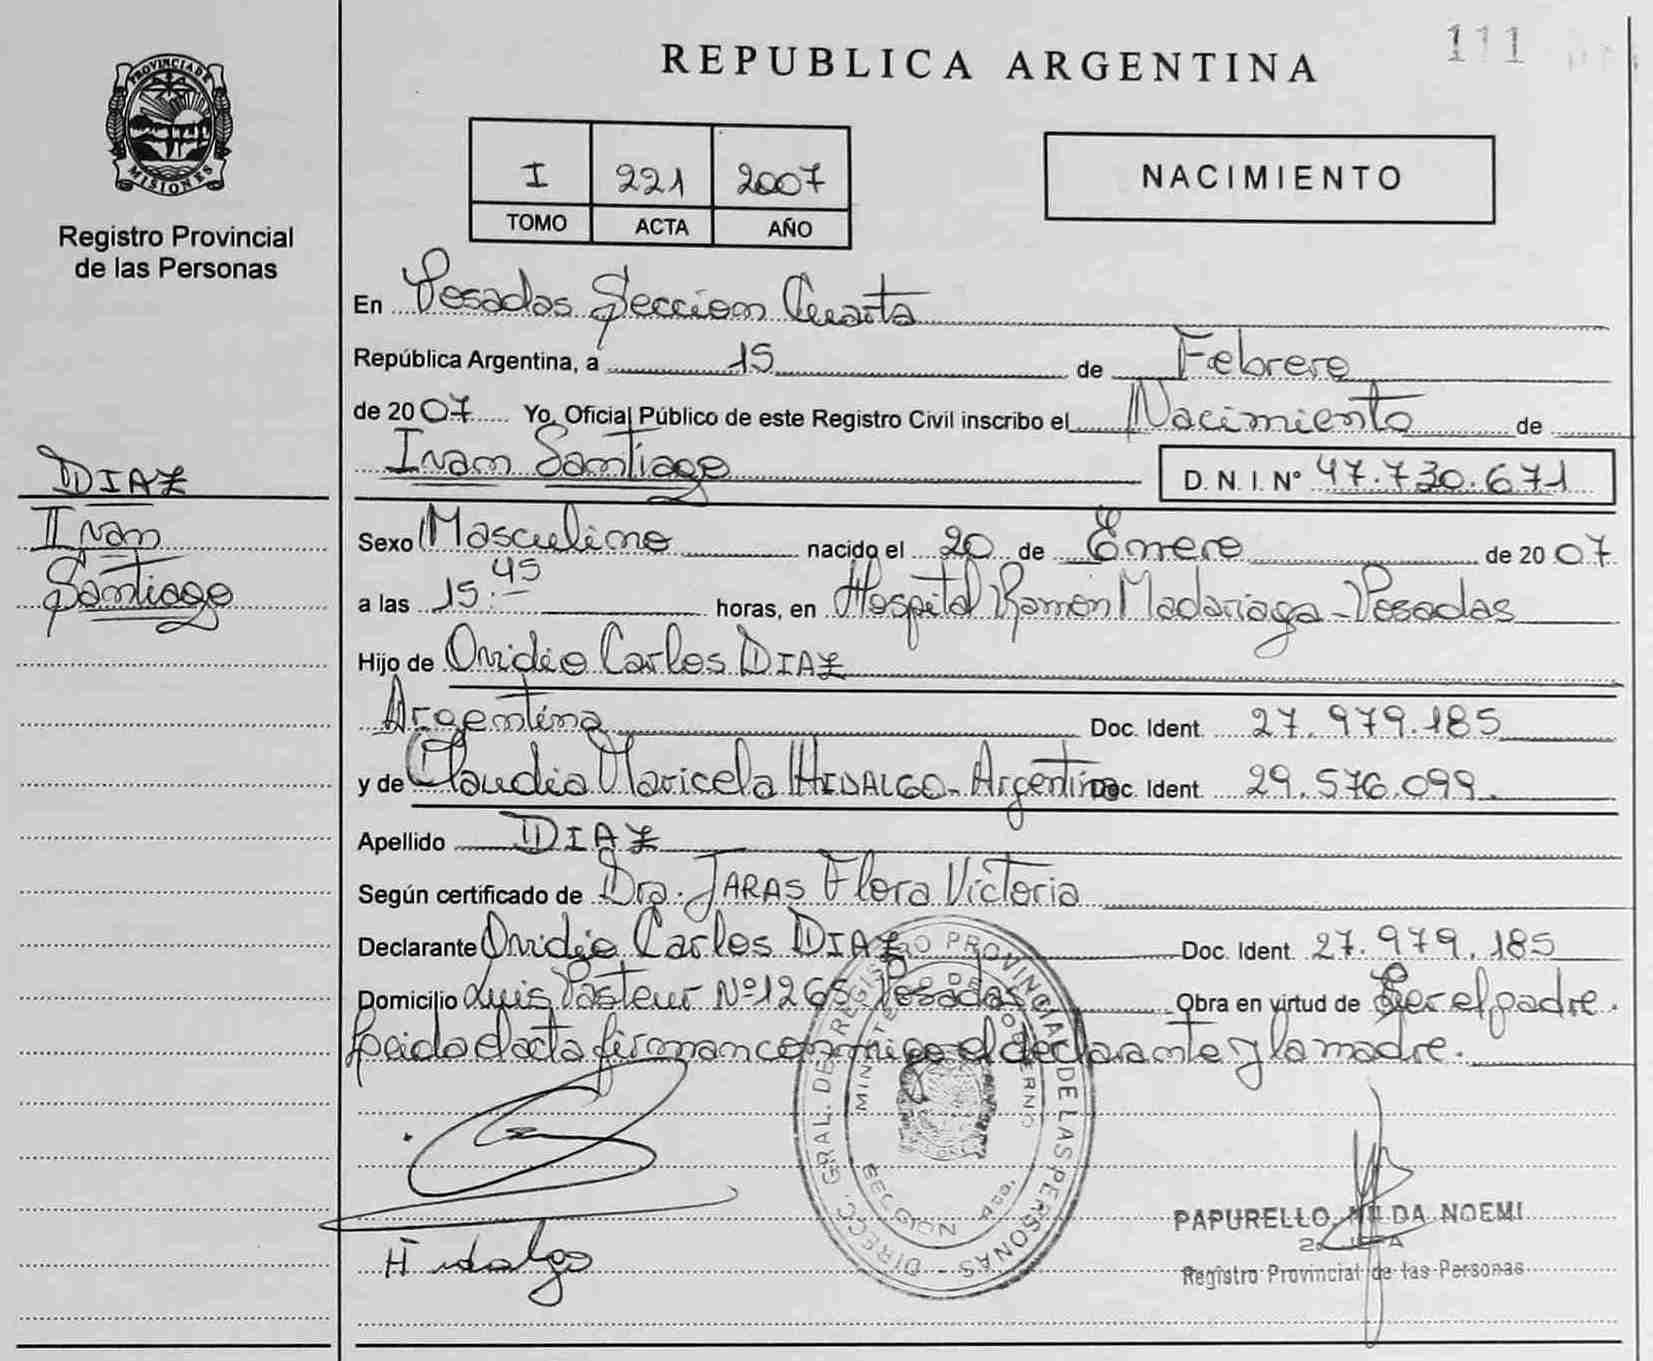 111
REPUBLICA ARGENTINA
PROVINCIA DE
MISIONES
Registro Provincial
de las Personas
I 221 2007
TOMO ACTA AÑO
NACIMIENTO
En Posadas Sección Cuarta
República Argentina, a 15 de Febrero
de 2007 Yo, Oficial Público de este Registro Civil inscribo el Nacimiento de
Ivan Santiago D. N. I. Nº 47.730.671
DIAZ
Ivan
Santiago
Sexo Masculino nacido el 20 de Enero de 2007
a las 15:45 horas, en Hospital Ramón Madariaga - Posadas
Hijo de Ovidio Carlos DIAZ
Argentina Doc. Ident. 27.979.185
y de Claudia Maricela HIDALGO - Argentina Doc. Ident. 29.576.099.
Apellido DIAZ
Según certificado de Dra. JARAS Flora Victoria
Declarante Ovidio Carlos DIAZ Doc. Ident. 27.979.185
Domicilio Luis Pasteur Nº 1265 Posadas Obra en virtud de Ser el padre.
Leida el acta firman conmigo el declarante y la madre.
DIRECC. GRAL. DE REGISTRO PROVINCIAL DE LAS PERSONAS
MINISTERIO DE GOBIERNO
SECCION 4ta.
Hidalgo
PAPURELLO, NILDA NOEMI
Registro Provincial de las Personas